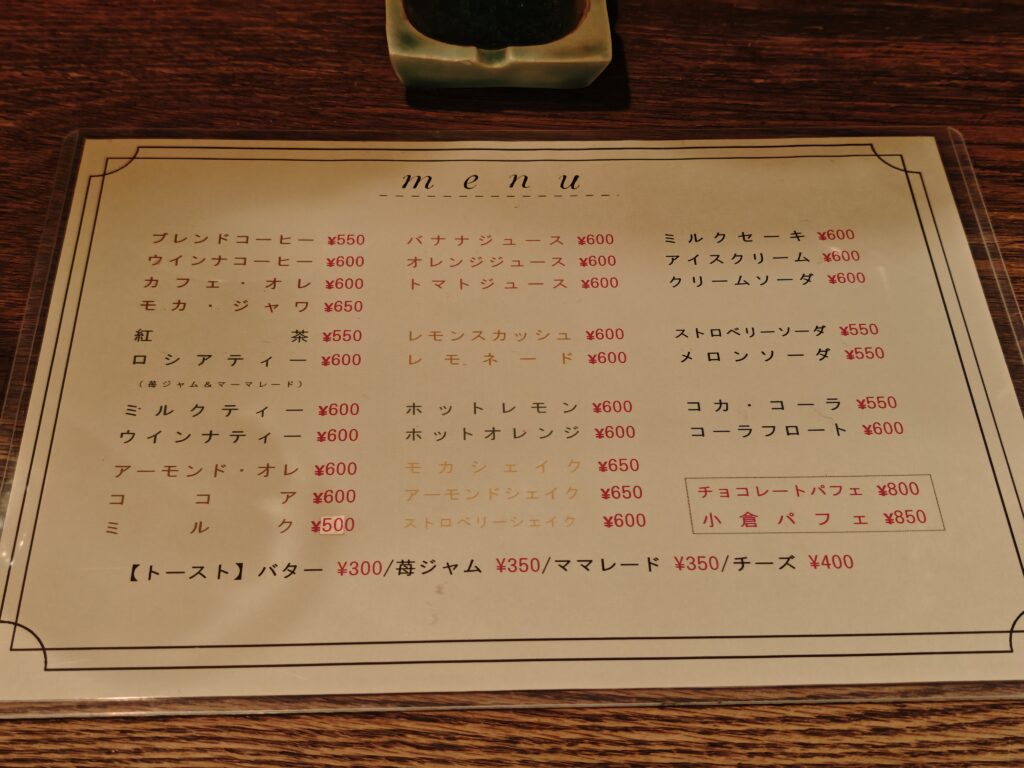 menu
ブレンドコーヒー ¥550
ウインナコーヒー ¥600
カフェ・オレ ¥600
モカ・ジャワ ¥650
紅茶 ¥550
ロシアティー ¥600
(苺ジャム&マーマレード)
ミルクティー ¥600
ウインナティー ¥600
アーモンド・オレ ¥600
ココア ¥600
ミルク ¥500
バナナジュース ¥600
オレンジジュース ¥600
トマトジュース ¥600
レモンスカッシュ ¥600
レモネード ¥600
ホットレモン ¥600
ホットオレンジ ¥600
モカシェイク ¥650
アーモンドシェイク ¥650
ストロベリーシェイク ¥600
ミルクセーキ ¥600
アイスクリーム ¥600
クリームソーダ ¥600
ストロベリーソーダ ¥550
メロンソーダ ¥550
コカ・コーラ ¥550
コーラフロート ¥600
チョコレートパフェ ¥800
小倉パフェ ¥850
【トースト】バター ¥300/苺ジャム ¥350/ママレード ¥350/チーズ ¥400